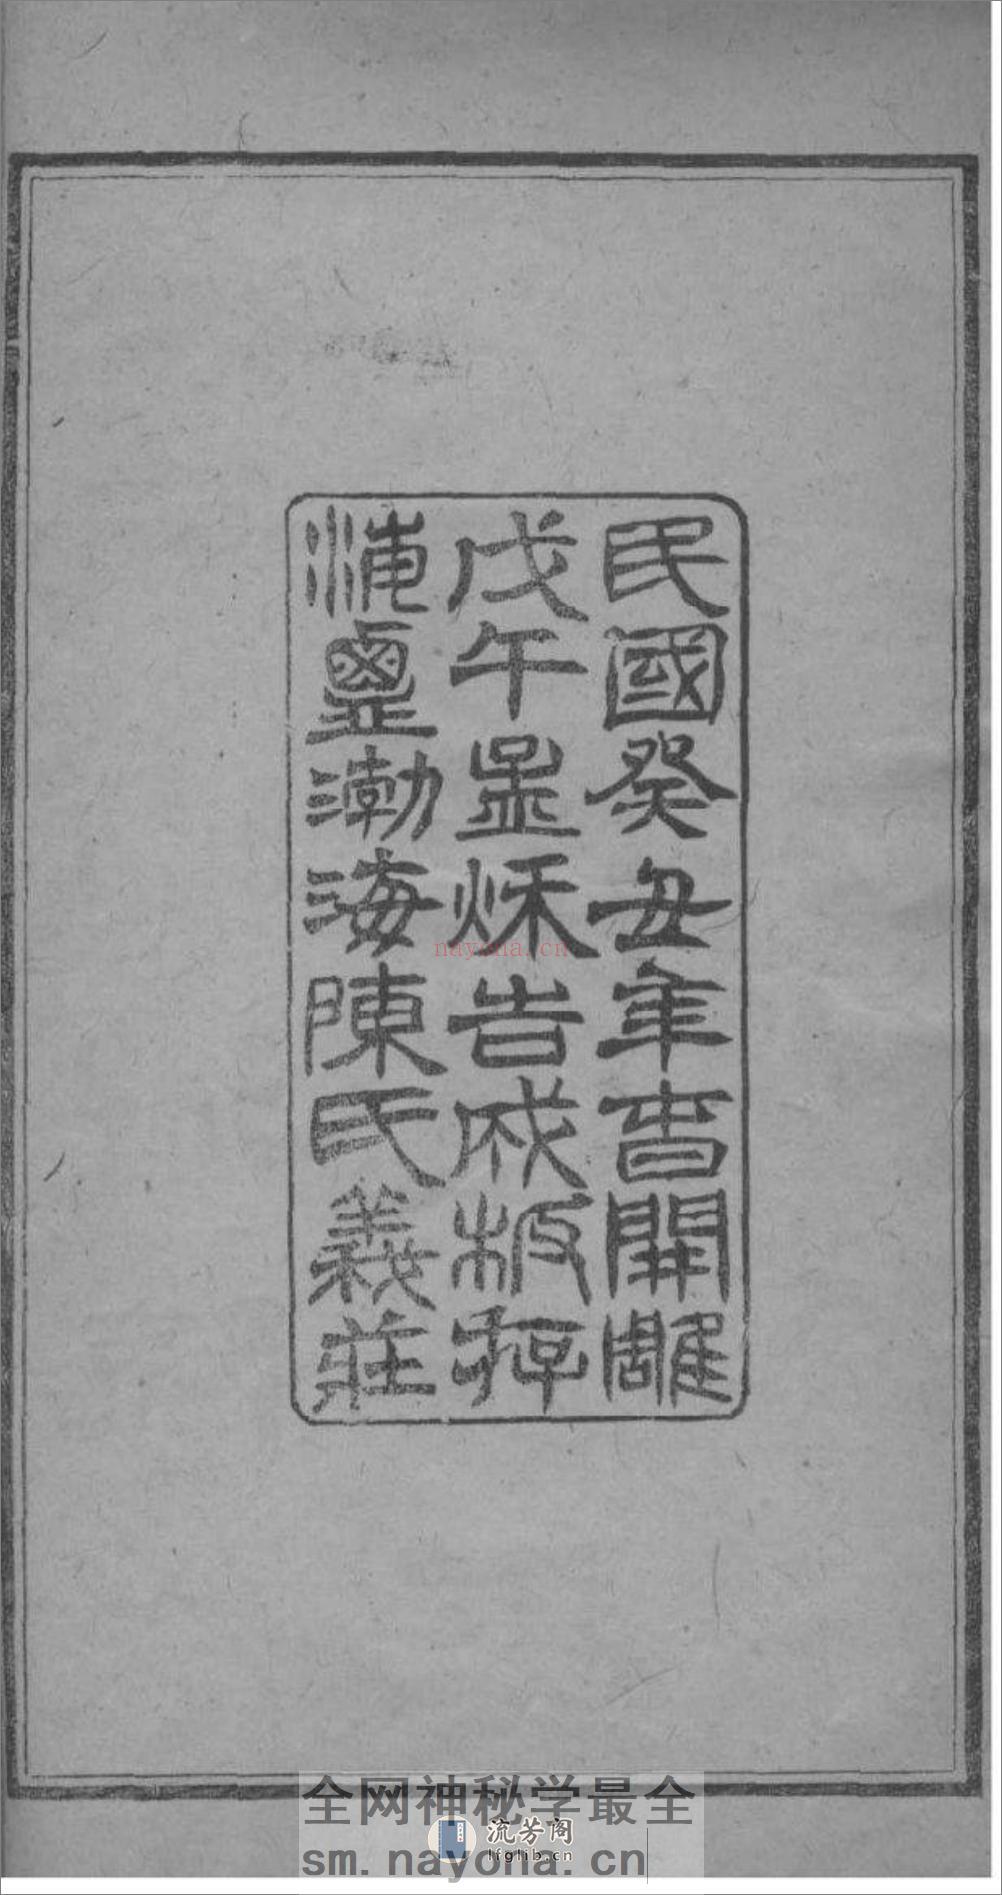 民國癸丑年春開雕
戊午孟秌告成板存
海鹽渤海陳氏義莊
nayona.cn
全网神秘学最全
流芳阁
lfglib.cn
sm.nayona.cn